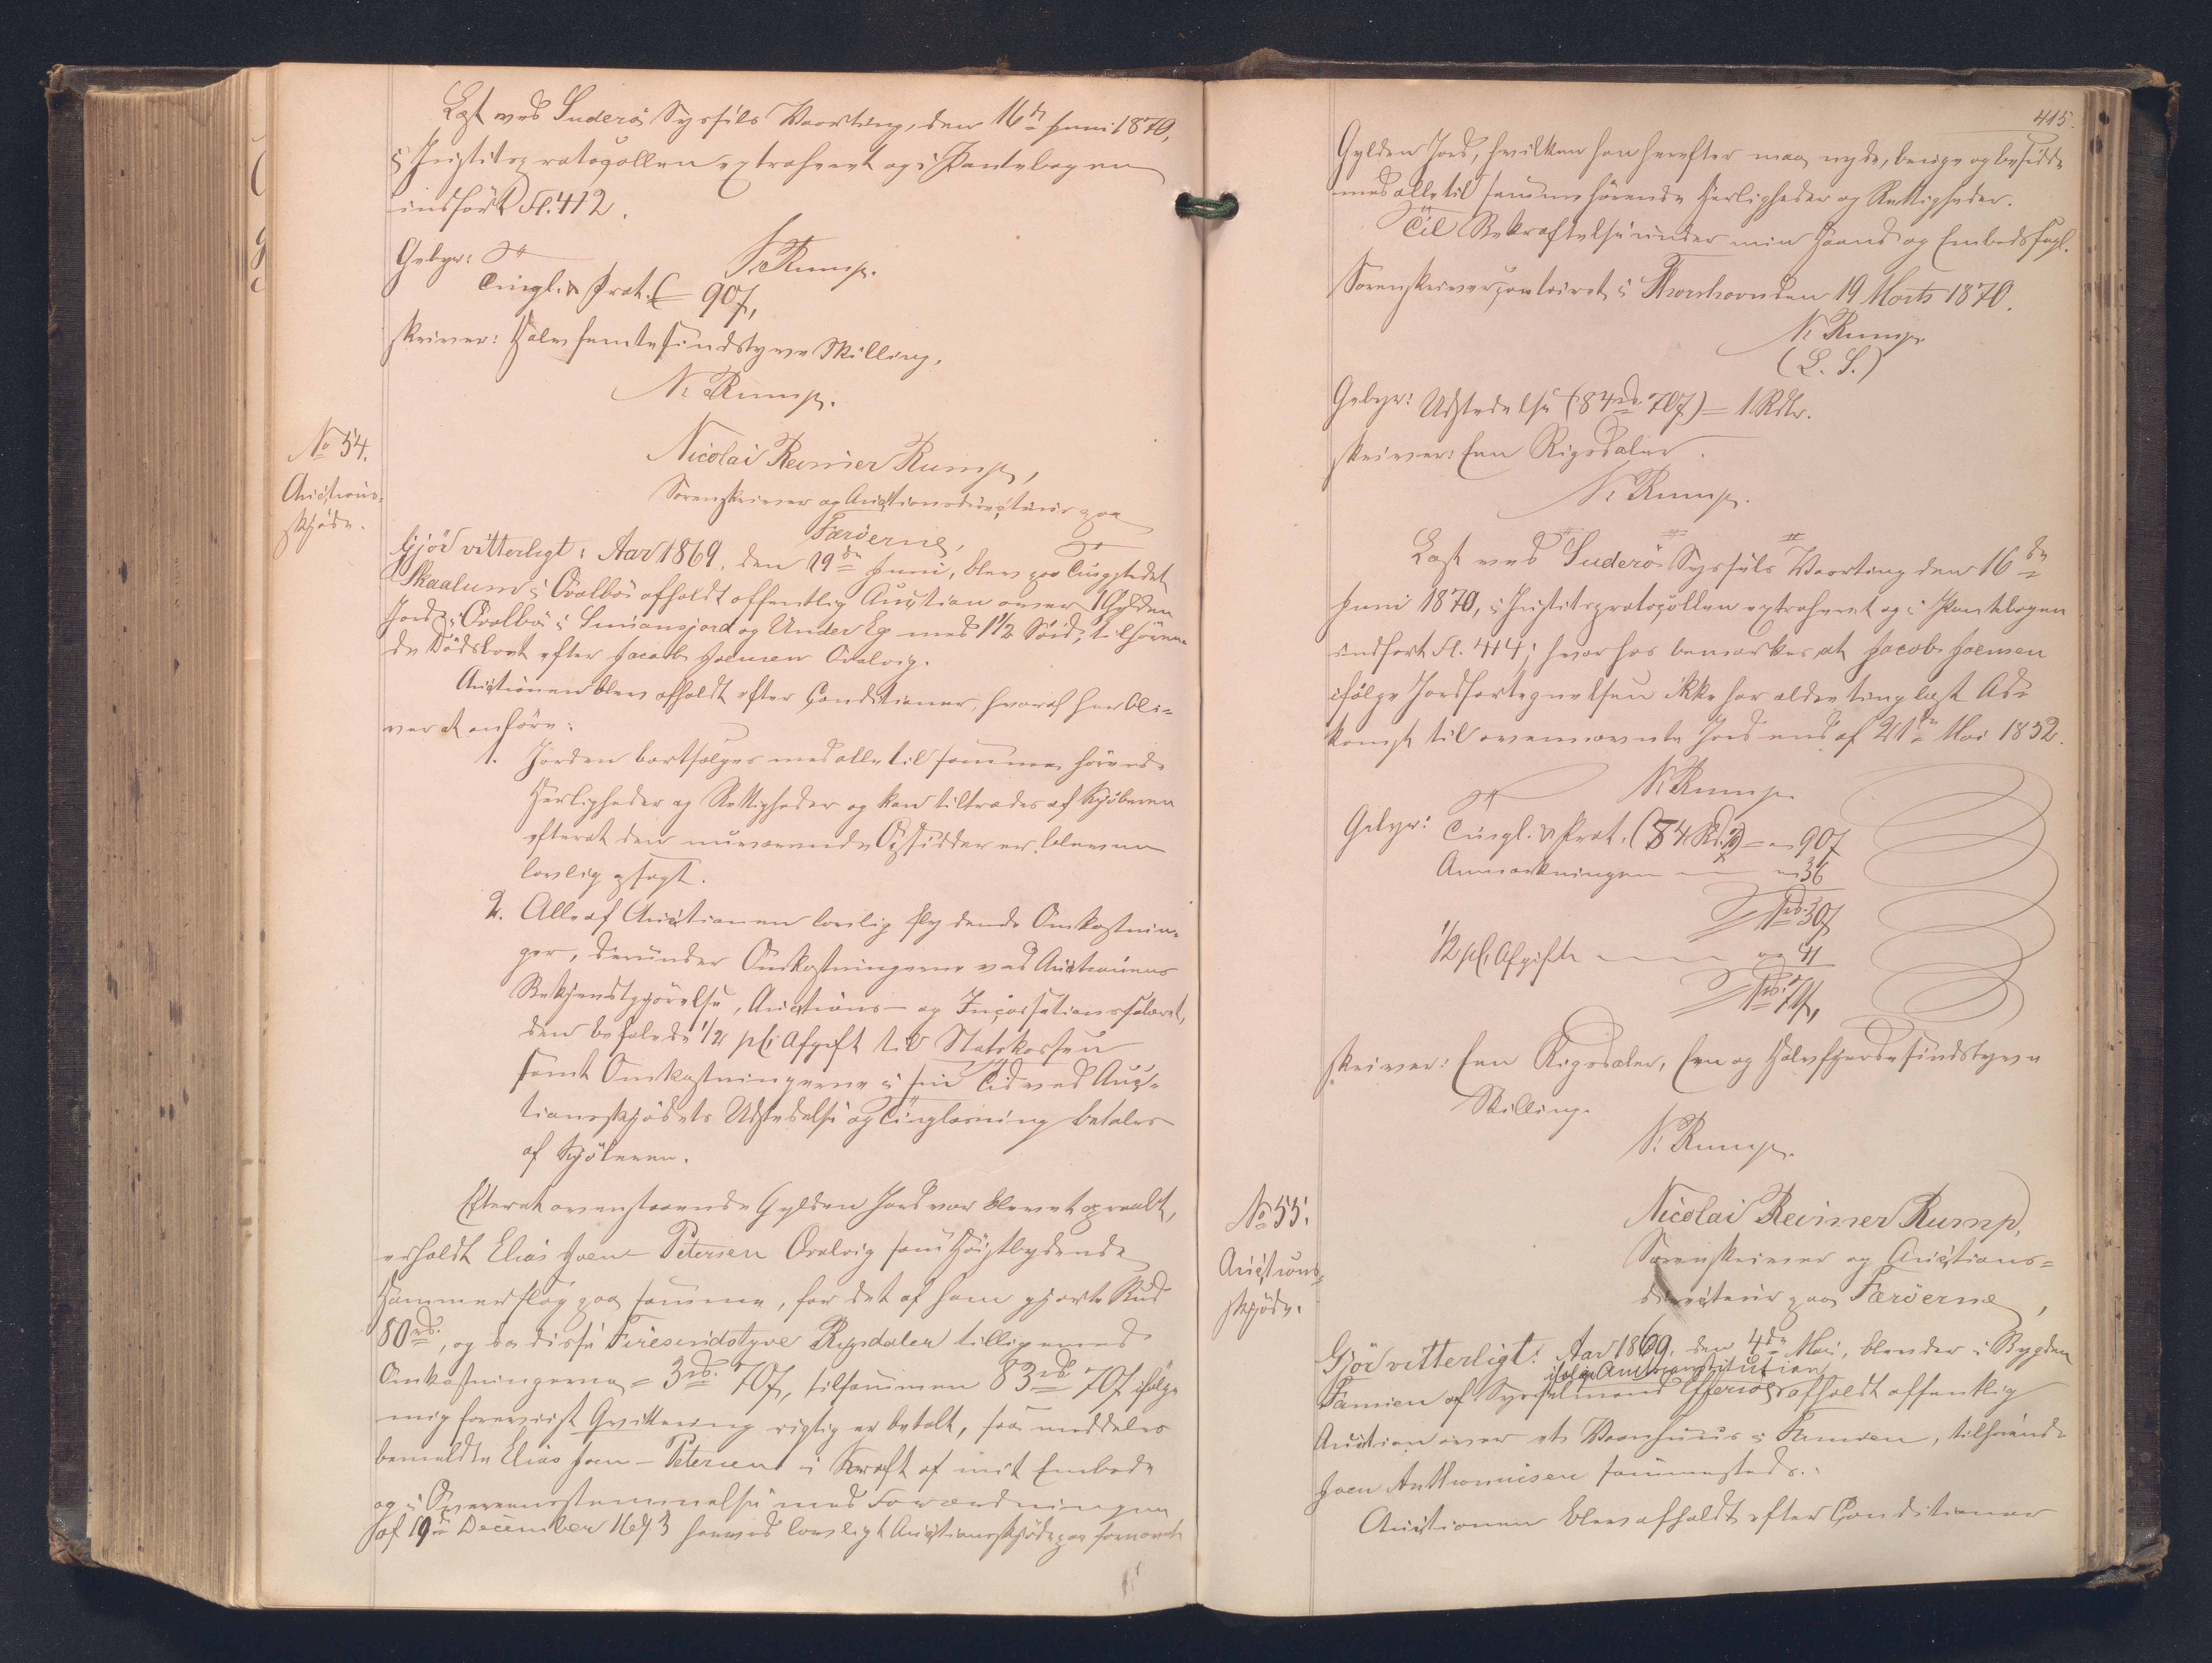 Læst ved Suderö Syssels Vaarting, den 16de Juni 1870,
i Justitsprotocollen extraheret og i Pantebogen
indfört Fl. 412.
N. Rump.
Gebyr:
Tingl. & Prot. = 90 f,
skriver: Halvfemtesindstyve Skilling.
N. Rump.
No 54.
Auctions-
skjöde.
Nicolai Reimer Rump,
Sorenskriver og Auctionsdirecteur paa
Færöerne,
Gjör vitterligt: Aar 1869, den 29de Juni, blev paa Tingstedet
Skaalum i Qvalbö afholdt offentlig Auction over 1 Gylden
Jord i Qvalbö i Simonsjord og Under Eg med 1 1/2 tilhören-
de Dödsboet efter Jacob Joensen Qvalvig.
Auctionen blev afholdt efter Conditioner, hvoraf her bli-
ver at anföre:
1. Jorden bortsælges med alle til samme hörende
Herligheder og Rettigheder og kan tiltrædes af Kjöberen
efterat den nuværende Opsidder er bleven
lovlig opsagt.
2. Alle af Auctionen lovlig flydende Omkostnin-
ger, derunder Omkostningerne ved Auctionens
Bekjendtgjörelse, Auctions- og Incassationssalairet,
den befalede 1/2 pCt Afgift til Statskassen
samt Omkostningerne i sin Tid ved Auc-
tionsskjödets Udstedelse og Tinglæsning betales
af Kjöberen.
Efterat ovenstaaende Gylden Jord var blevet opraabt,
erholdt Elias Joen-Petersen Qvalvig som Höistbydende
Hammerslag paa samme, for det af ham gjorte Bud
80 rd., og da disse Firesindstyve Rigsdaler tilligemed
Omkostningerne = 3 rd. 70 f, tilsammen 83 rd 70 f ifölge
mig foreviist Qvittering rigtig er betalt, saa meddeles
bemeldte Elias Joen-Petersen i Kraft af mit Embede
og i Overeensstemmelse med Forordningen
af 19de December 1693 herved lovligt Auctionsskjöde paa fornævnte
415.
Gylden Jord, hvilken han herefter maa nyde, bruge og besidde
med alle til samme hörende Herligheder og Rettigheder.
Til Bekræftelse under min Haand og Embedssegl.
Sorenskrivercontoiret i Thorshavn den 19 Marts 1870.
N. Rump
(L. S.)
Gebyr: Udstedelse (84 rd. 70 f) = 1 Rdlr.
skriver: Een Rigsdaler.
N. Rump.
Læst ved Suderö Syssels Vaarting den 16de
Juni 1870, i Justitsprotocollen extraheret og i Pantebogen
indfört Fl. 414; hvorhos bemærkes at Jacob Joensen
ifölge Jordfortegnelsen ikke har ældre tinglæst Ad-
komst til ovennævnte Jord end af 21de Mai 1852.
N. Rump.
Gebyr: Tingl. & Prot. (84 Rd.) = 90 f
Anmærkningen 36
1 rd. 30 f
1/2 pCt Afgift 41
1 rd. 71 f,
skriver: Een Rigsdaler, Een og Halvfjerdesindstyve
Skilling.
N. Rump.
No 55.
Auctions-
skjöde.
Nicolai Reimer Rump,
Sorenskriver og Auctions-
directeur paa Færöerne,
Gjör vitterligt: Aar 1869, den 4de Mai, blev der i Bygden
ifölge Amtsconstitution
Famien af Sysselmand Effersöe afholdt offentlig
Auction over et Vaanhuus i Famien, tilhörende
Joen Anthoniusen sammesteds.
Auctionen blev afholdt efter Conditioner